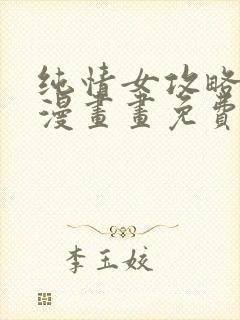 纯情女攻略
漫畫畫免費
李玉姣